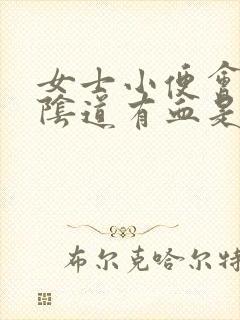 女士小便會
陰道有血是
布尔克哈尔特